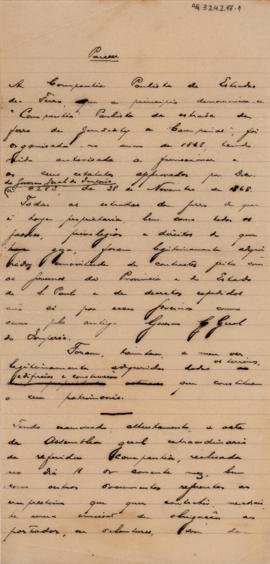 Parecer
A Companhia Paulista de Estradas
de Ferro, que a principio denominava-se
"Companhia Paulista da estrada de
ferro de Jundiahy a Campinas", foi
organisada no anno de 1868, tendo
sido autorisada a funccionar e
os seus estatutos approvados por De-
de 28 de Novembro de 1868.
Todas as estradas de ferro de que
é hoje proprietaria bem como todos os
privilegios e direitos de que
goza, foram legitimamente adqui-
ridos de contractos feitos com
os governos da Provincia e do Estado
de S. Paulo e de decretos expedidos
não só por esses governos como
pelo antigo Governo Geral
do Imperio.
Foram, tambem, a meu ver
legitimamente adquiridos todos os terrenos,
edificios e que constituem
o seu patrimonio.
Tendo examinado attentamente, a acta
da Assembléa geral extraordinaria
da referida companhia, realisada
no dia do corrente mez, bem
como outros documentos referentes ao
emprestimo que quer contrahir,
de uma emissão de obrigações ao
portador, ou debentures,